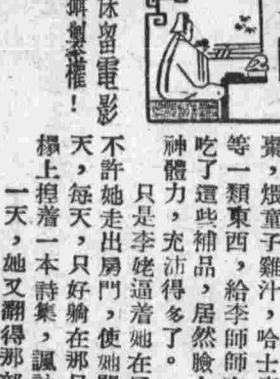 棗，煨童子雞汁，哈士
等一類東西，給李師師
吃了這些補品，居然臉
神體力，充沛得多了。
只是李姥逼着她在
不許她走出房門，使她
天，每天，只好躺在那
榻上揑着一本詩集，諷
一天，她又翻得那
留電影
權！